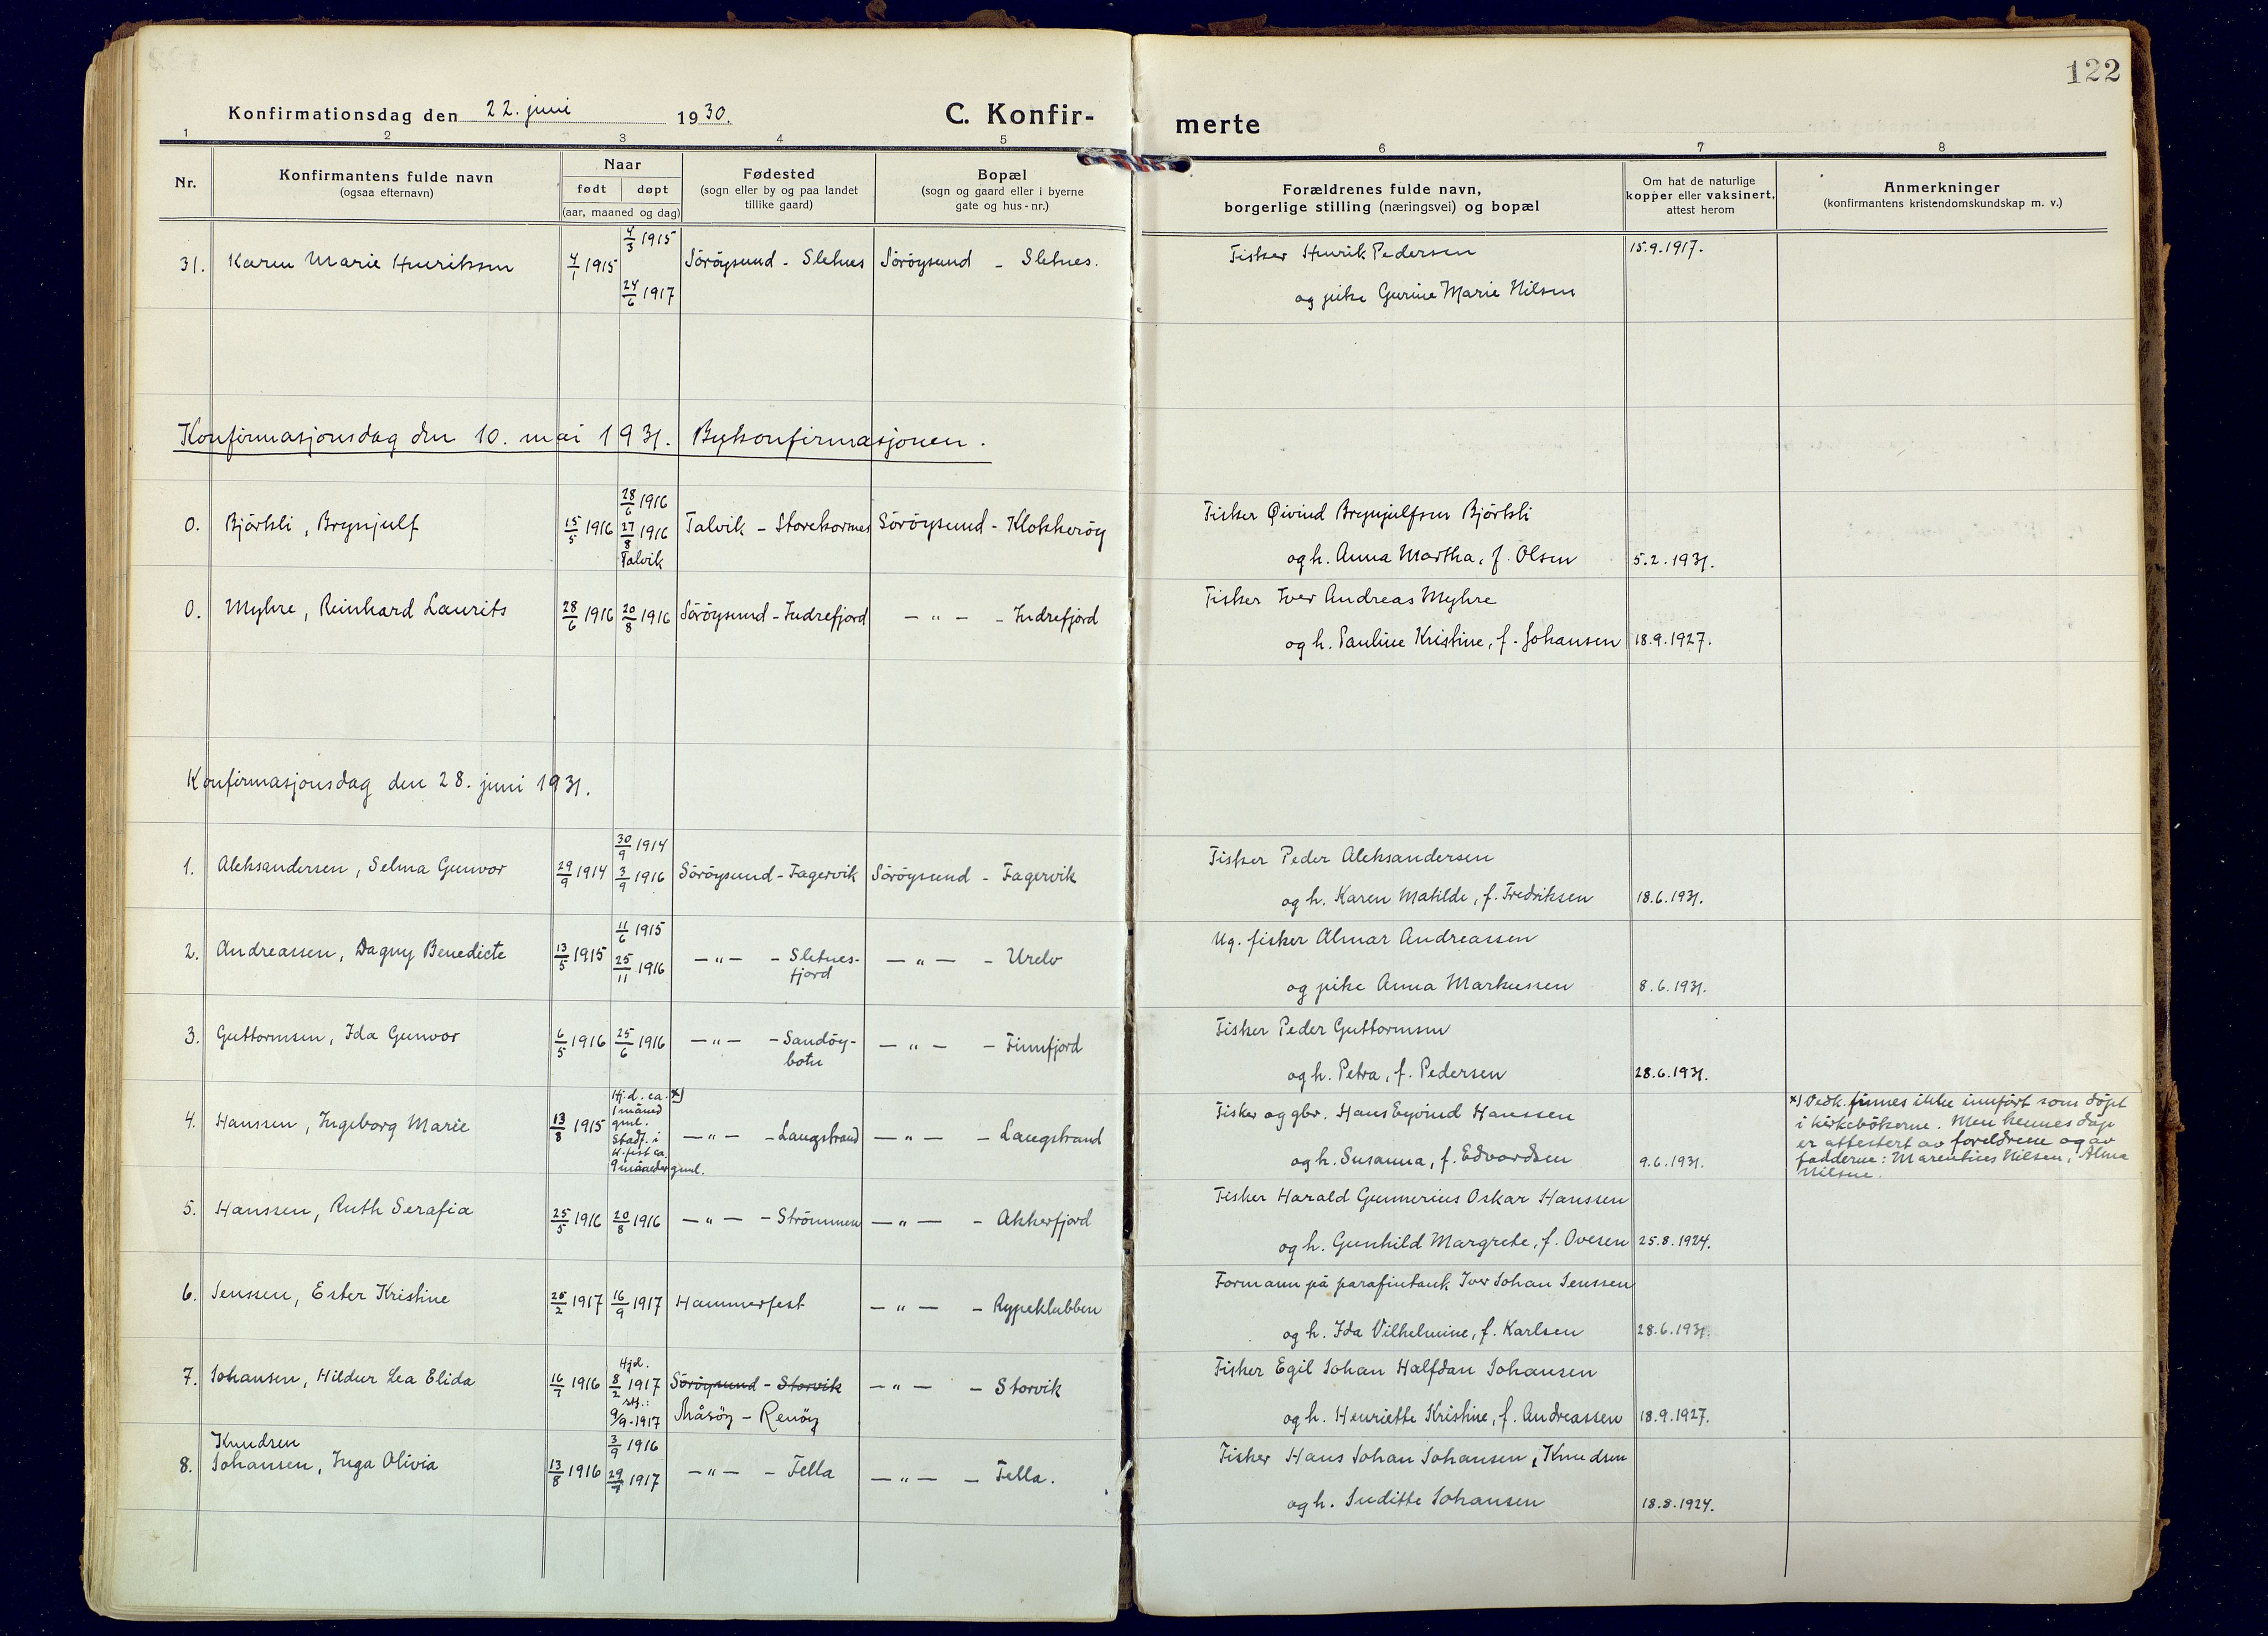 122
Konfirmationsdag den 22. juni 1930.
C. Konfir-
merte
1 2 3 4 5 6 7 8
Nr.
Konfirmantens fulde navn
(ogsaa efternavn)
Naar
født døpt
(aar, maaned og dag)
Fødested
(sogn eller by og paa landet
tillike gaard)
Bopæl
(sogn og gaard eller i byerne
gate og hus-nr.)
Forældrenes fulde navn,
borgerlige stilling (næringsvei) og bopæl
Om hat de naturlige
kopper eller vaksinert,
attest herom
Anmerkninger
(konfirmantens kristendomskundskap m. v.)
4/3 1915
31. Karen Marie Henriksen 4/1 1915 Söröysund - Sletnes Söröysund - Sletnes. Fisker Henrik Pedersen 15.9.1917.
24/6 1917
og pike Gurine Marie Nilsen
Konfirmasjonsdag den 10. mai 1931. Bykonfirmasjonen.
28/6 1916
0. Björkli, Brynjulf 15/5 1916 27/8 1916 Talvik - Storekornes Söröysund - Klokkeröy Fisker Øivind Brynjulfsen Björkli
Talvik
og h. Anna Martha, f. Olsen 5.2.1931.
0. Myhre, Reinhard Laurits 28/6 1916 20/8 1916 Söröysund - Indrefjord - " - - Indrefjord Fisker Iver Andreas Myhre
og h. Pauline Kristine, f. Johansen 18.9.1927.
Konfirmasjonsdag den 28. juni 1931.
30/9 1914
1. Aleksandersen, Selma Gunvor 29/9 1914 3/9 1916 Söröysund - Fagervik Söröysund - Fagervik Fisker Peder Aleksandersen
og h. Karen Matilde, f. Fredriksen 18.6.1931.
11/6 1915
2. Andreassen, Dagny Benedicte 13/5 1915 25/11 1916 - " - - Sletnes- - " - - Urelv Ug. fisker Almar Andreassen
fjord
og pike Anna Markussen 8.6.1931.
3. Guttormsen, Ida Gunvor 6/5 1916 25/6 1916 - " - - Sandöy- - " - - Finnfjord Fisker Peder Guttormsen
botn
og h. Petra, f. Pedersen 28.6.1931.
Hj.d. ca. x)
1 måned
gml.
4. Hanssen, Ingeborg Marie 13/8 1915 Stadf. i - " - - Langstrand - " - - Langstrand Fisker og gbr. Hans Eyvind Hanssen
H.fest ca.
9 måneder gml.
og h. Susanna, f. Edvardsen 9.6.1931.
x) Vedk. finnes ikke innfört som döpt
i kirkebökerne. Men hennes dåp
er attestert av foreldrene og av
fadderne: Marentius Nilsen, Alma
Nilsne.
5. Hanssen, Ruth Serafia 25/5 1916 20/8 1916 - " - - Strömmen - " - - Akkerfjord Fisker Harald Gunnerius Oskar Hanssen
og h. Gunhild Margrete, f. Ovesen 25.8.1924.
6. Jenssen, Ester Kristine 25/2 1917 16/9 1917 Hammerfest - " - - Rypeklubben Formann på parafintank Iver Johan Jenssen
og h. Ida Vilhelmine, f. Karlsen 28.6.1931.
Hjd.
7. Johansen, Hildur Lea Elida 16/7 1916 8/2 1917 Söröysund - Storvik - " - - Storvik Fisker Egil Johan Halfdan Johansen
stf.:
9/9-1917 Måsöy - Renöy
og h. Henriette Kristine, f. Andreassen 18.9.1927.
Knudsen 3/9 1916
8. Johansen, Inga Olivia 13/8 1916 29/7 1917 - " - - Fella - " - - Fella. Fisker Hans Johan Johansen, Knudsen
og h. Juditte Johansen 18.8.1924.